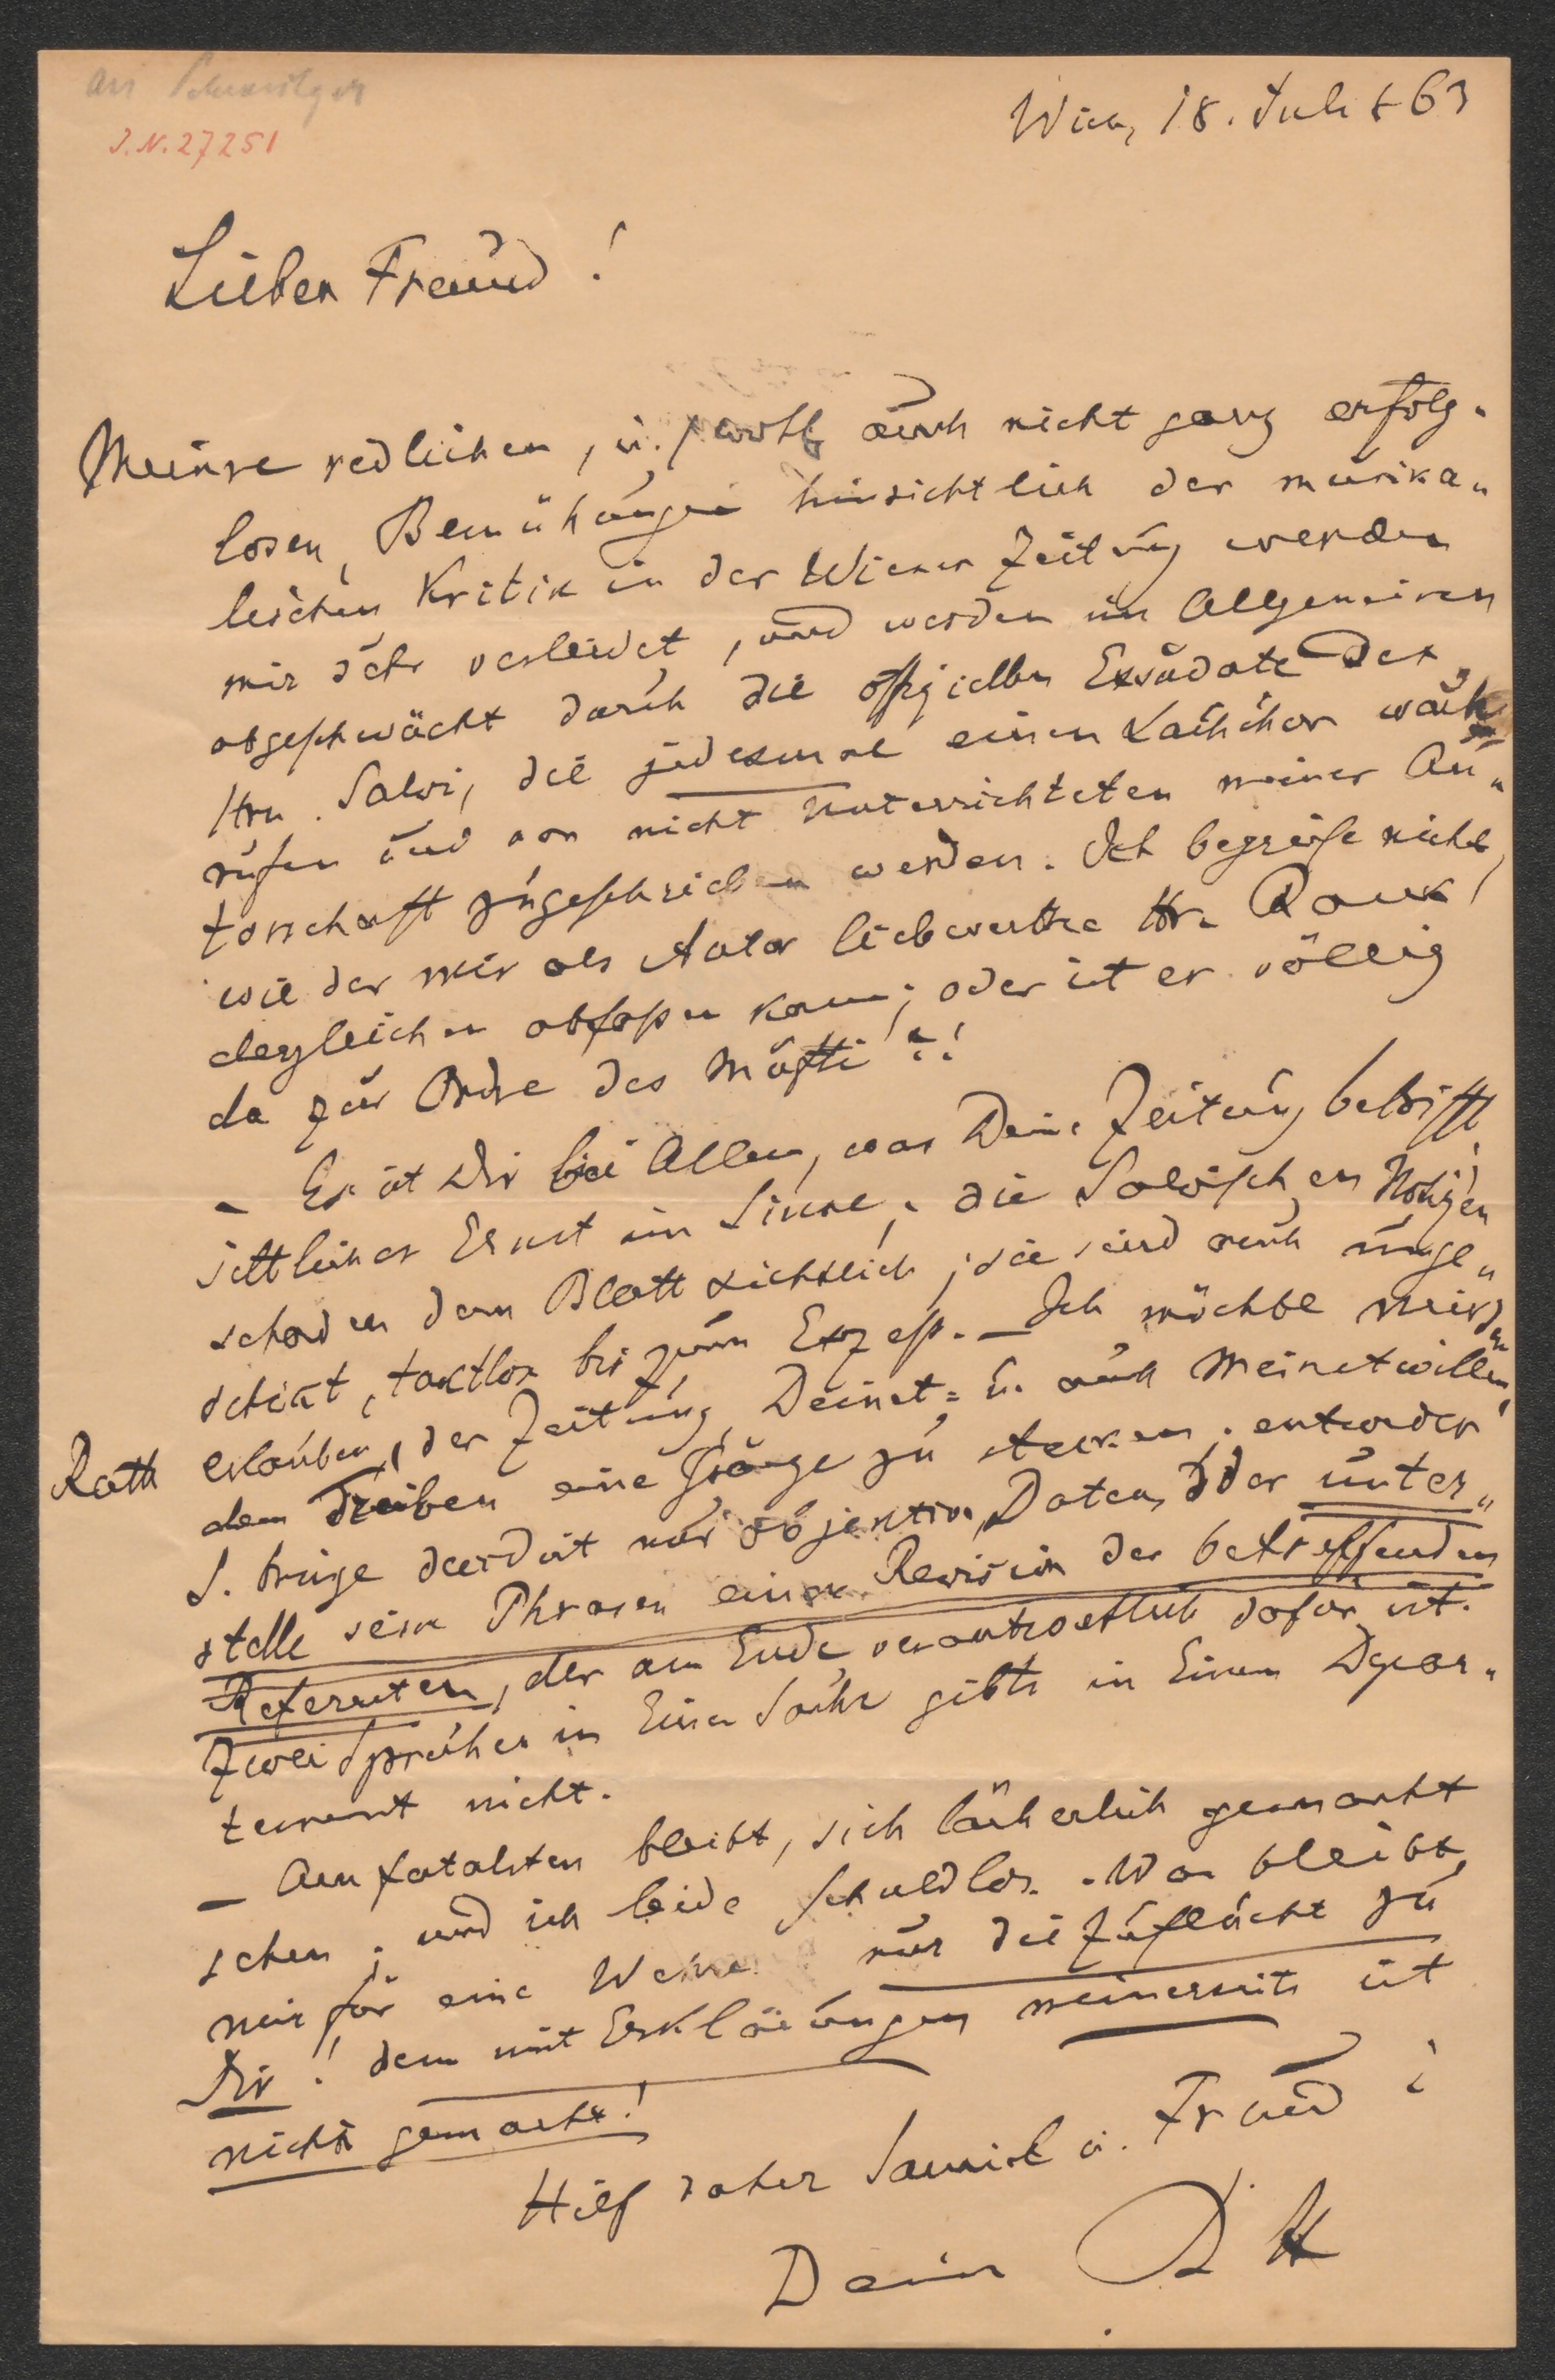 an Schweitzer
J.N. 27251
Wien, 18. Juli 863
Lieber Freund!
Meine redlichen, u. wohl auch nicht ganz erfolg-
losen, Bemühungen hinsichtlich der musika-
lischen Kritik in der Wiener Zeitung werden
mir sehr verleidet, und werden im Allgemeinen
abgeschwächt durch die offiziellen Exsudate des
Hrn. Salvi, die jedesmal einen Lachchor wach
rufen und von nicht Unterrichteten meiner Au-
torschaft zugeschrieben werden. Ich begreife nicht,
wie der mir als Autor liebwerthe Hr. Rank
dergleichen abfassen kann; oder ist er völlig
da zur Ordre des Mufti?!
– Es ist Dir bei Allem, was Deine Zeitung betrifft
sittlicher Ernst im Sinne; die Salvischen Notizen
schaden dem Blatt sichtlich; sie sind auch unge-
schickt, taktlos bis zum Exzeß. – Ich möchte mir den
Rath erlauben, der Zeitung, Deinet= u. auch Meinetwillen,
dem Treiben eine Gränze zu stecken; entweder
S. bringe durchaus nur objektive Daten, oder unter-
stelle seine Phrasen einer Revision des betreffenden
Referenten, der am Ende verantwortlich dafür ist.
Zwei Sprachen in Einer Sache gibts in Einem Depar-
tement nicht.
– Am fatalsten bleibt, sich lächerlich gemacht
sehen; und ich leide schuldlos. Was bleibt
mir für eine Wehre? nur die Zuflucht zu
Dir! denn mit Erklärungen meinerseits ist
nichts gemacht!
Hilf daher Landsl. u. Freund!
Dein D. H